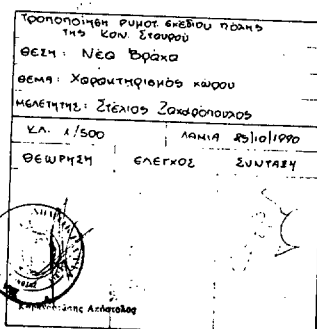 Τροποποίηση ρυμοτ. σχεδίου πόλης
της Κοιν. Σταυρού
ΘΕΣΗ: Νέα Βράχα
ΘΕΜΑ: Χαρακτηρισμός χώρου
ΜΕΛΕΤΗΤΗΣ: Στέλιος Ζαχαρόπουλος
ΚΛ. 1/500 ΛΑΜΙΑ 25|10|1990
ΘΕΩΡΗΣΗ ΕΛΕΓΧΟΣ ΣΥΝΤΑΞΗ